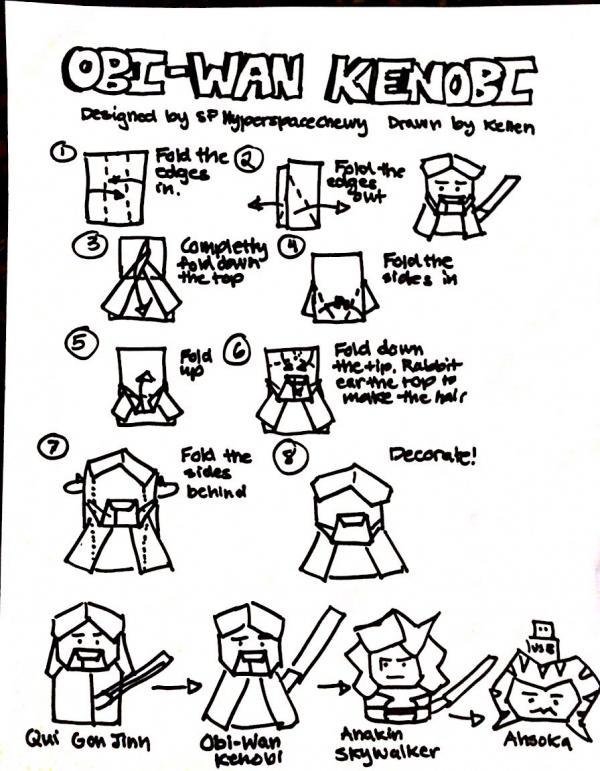 OBI-WAN KENOBI
Designed by SP Hyperspacechewy Drawn by Kellen
1
Fold the
edges
in.
2
Fold the
edges
out
3
Completty
fold down
the top
4
Fold the
sides in
5
Fold
up
6
Fold down
the tip. Rabbit
ear the top to
make the hair
7
Fold the
sides
behind
8
Decorate!
Qui Gon Jinn
Obi-Wan
Kenobi
Anakin
Skywalker
Ahsoka